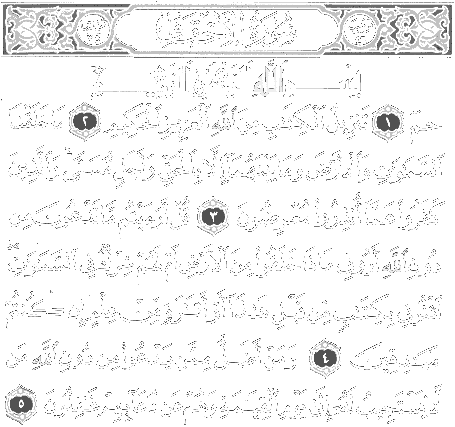 سورة الأحقاف
بسم الله الرحمن الرحيم
حم ١ تنزيل الكتب من الله العزيز الحكيم ٢ ما خلقنا
السموت والأرض وما بينهما إلا بالحق وأجل مسمى والذين
كفروا عما أنذروا معرضون ٣ قل أرءيتم ما تدعون من
دون الله أروني ماذا خلقوا من الأرض أم لهم شرك في السموت
ائتوني بكتب من قبل هذا أو أثرة من علم إن كنتم
صدقين ٤ ومن أضل ممن يدعوا من دون الله من
لا يستجيب له إلى يوم القيمة وهم عن دعائهم غفلون ٥